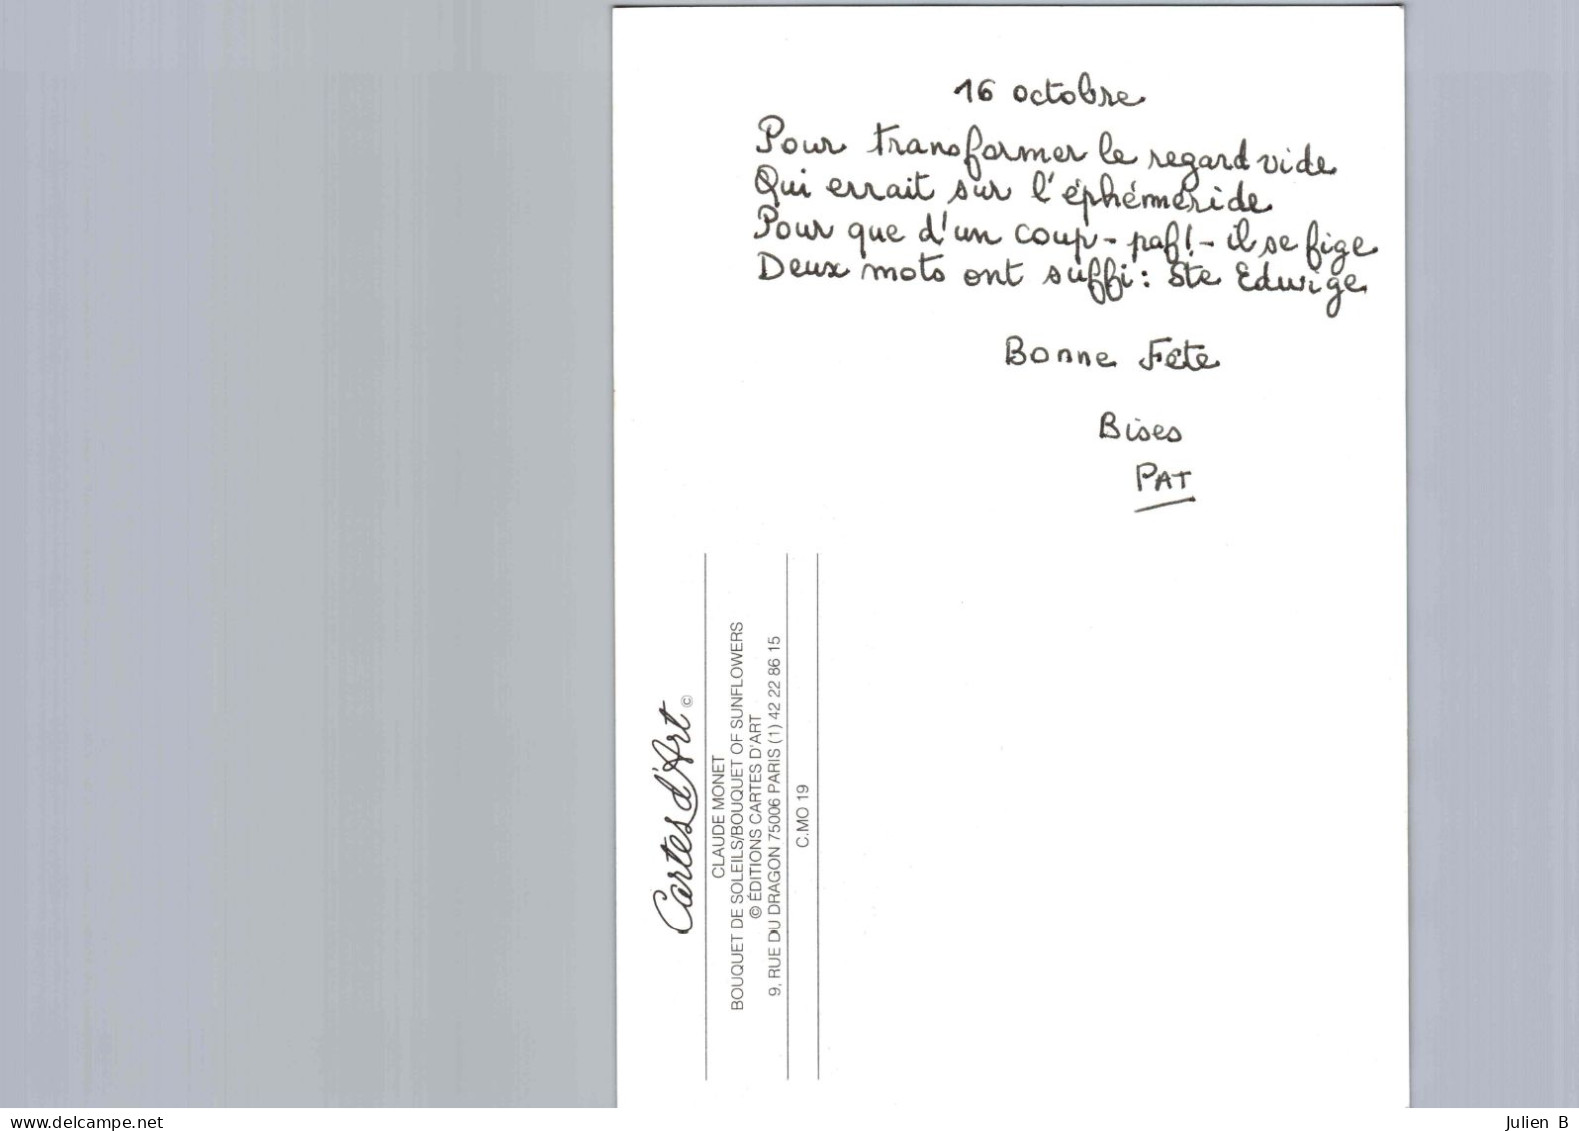 16 octobre
Pour transformer le regard vide
Qui errait sur l'éphéméride
Pour que d'un coup - paf! - il se fige
Deux mots ont suffi : Ste Edwige
Bonne Fête
Bises
PAT
Cartes d'Art ©
CLAUDE MONET
BOUQUET DE SOLEILS/BOUQUET OF SUNFLOWERS
© ÉDITIONS CARTES D'ART
9, RUE DU DRAGON 75006 PARIS (1) 42 22 86 15
C.MO 19
www.delcampe.net
Julien B